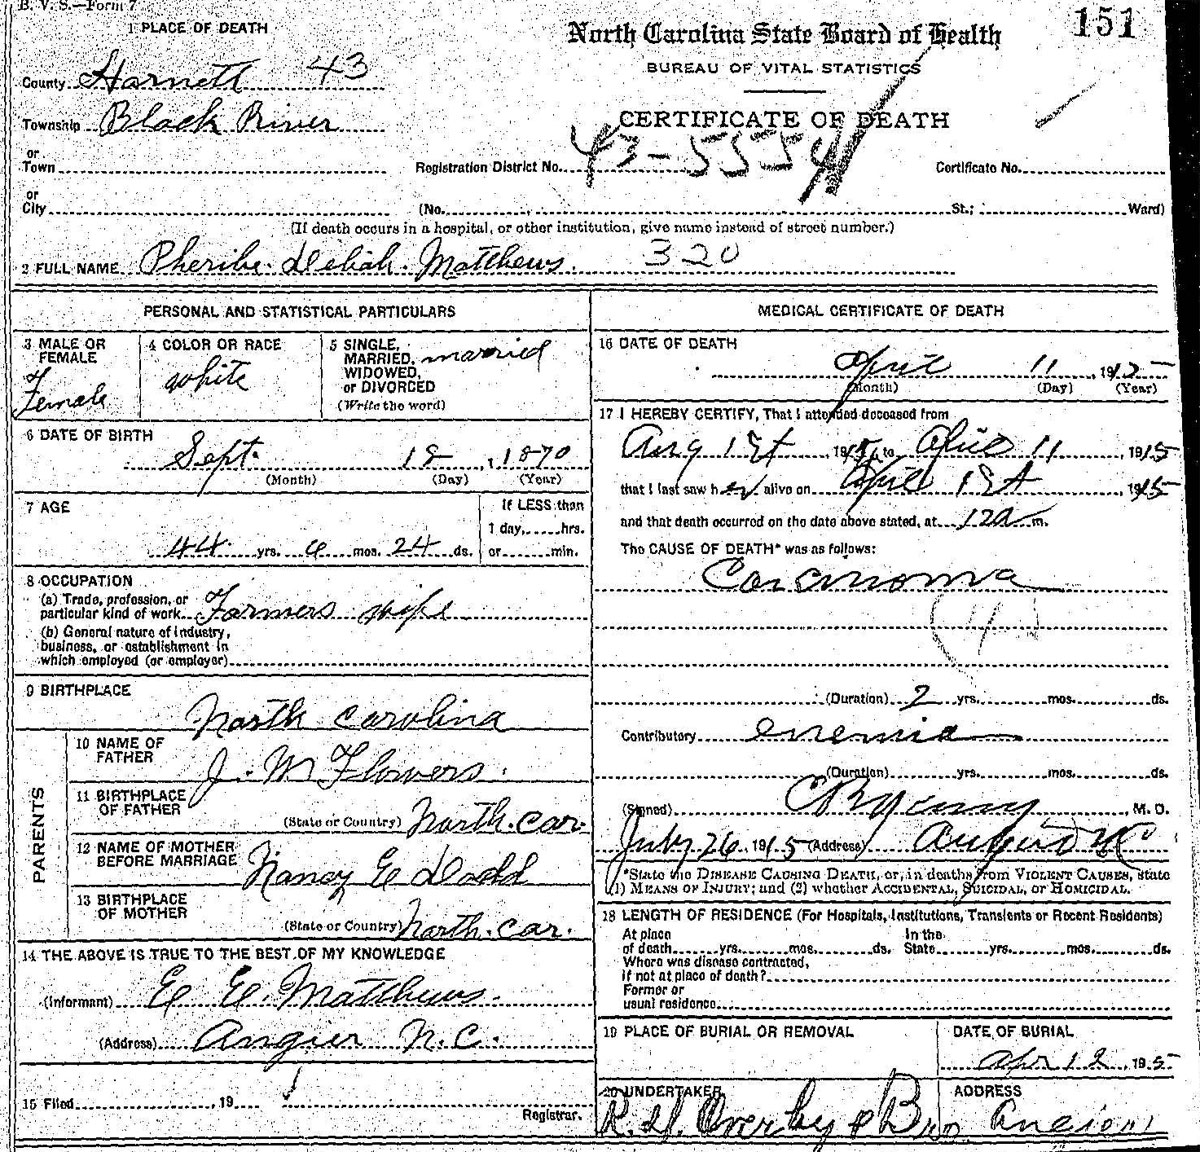 B. V. S.—Form 7
1 PLACE OF DEATH
North Carolina State Board of Health
151
BUREAU OF VITAL STATISTICS
County Harnett 43
CERTIFICATE OF DEATH
Township Black River
or
Town
Registration District No. 43-5554
Certificate No.
or
City
(No. , St.; Ward)
(If death occurs in a hospital, or other institution, give name instead of street number.)
2 FULL NAME Pheribe Deliah Matthews. 320
PERSONAL AND STATISTICAL PARTICULARS
3 MALE OR FEMALE
Female
4 COLOR OR RACE
white
5 SINGLE, MARRIED, WIDOWED, or DIVORCED
(Write the word)
married
6 DATE OF BIRTH
Sept. 18, 1870
(Month) (Day) (Year)
7 AGE
44 yrs. 6 mos. 24 ds.
If LESS than
1 day, hrs.
or min.
8 OCCUPATION
(a) Trade, profession, or
particular kind of work Farmers wife
(b) General nature of industry,
business, or establishment in
which employed (or employer)
9 BIRTHPLACE
North Carolina
PARENTS
10 NAME OF FATHER
J. M Flowers.
11 BIRTHPLACE OF FATHER
(State or Country) North. Car.
12 NAME OF MOTHER BEFORE MARRIAGE
Nancy E
13 BIRTHPLACE OF MOTHER
(State or Country) North. Car.
14 THE ABOVE IS TRUE TO THE BEST OF MY KNOWLEDGE
(Informant) E E. Matthews.
(Address) Angier N.C.
15 Filed 19
Registrar.
MEDICAL CERTIFICATE OF DEATH
16 DATE OF DEATH
April 11, 1915
(Month) (Day) (Year)
17 I HEREBY CERTIFY, That I attended deceased from
Aug 1st 191 , to April 11 1915
that I last saw her alive on April 1st 1915
and that death occurred on the date above stated, at 12a m.
The CAUSE OF DEATH* was as follows:
Carcinoma
(Duration) 2 yrs. mos. ds.
Contributory enemia
(Duration) yrs. mos. ds.
(Signed) M. D.
July 26, 1915 (Address) Angier NC
*State the DISEASE CAUSING DEATH, or, in deaths from VIOLENT CAUSES, state
(1) MEANS OF INJURY; and (2) whether ACCIDENTAL, SUICIDAL, OR HOMICIDAL.
18 LENGTH OF RESIDENCE (For Hospitals, Institutions, Transients or Recent Residents)
At place In the
of death yrs. mos. ds. State yrs. mos. ds.
Where was disease contracted,
If not at place of death?
Former or
usual residence
19 PLACE OF BURIAL OR REMOVAL
DATE OF BURIAL
Apr 12, 1915
20 UNDERTAKER
R. H. Overby & Bro
ADDRESS
Angier